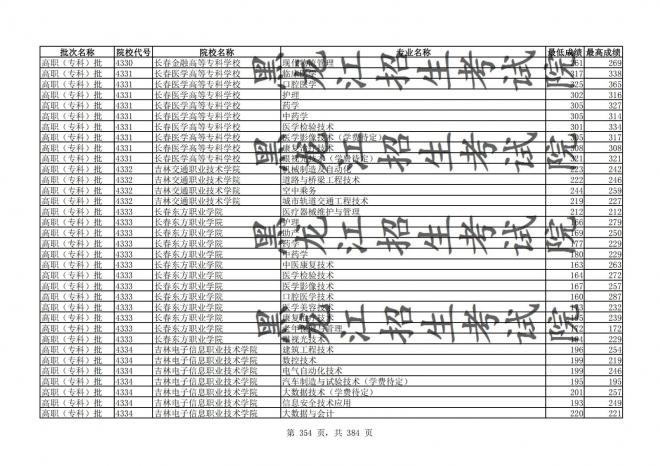 批次名称 院校代号 院校名称 专业名称 最低成绩 最高成绩
高职（专科）批 4330 长春金融高等专科学校 现 管理 261 269
高职（专科）批 4331 长春医学高等专科学校 临床医学 317 338
高职（专科）批 4331 长春医学高等专科学校 口腔医学 325 365
高职（专科）批 4331 长春医学高等专科学校 护理 302 316
高职（专科）批 4331 长春医学高等专科学校 药学 305 327
高职（专科）批 4331 长春医学高等专科学校 中药学 305 314
高职（专科）批 4331 长春医学高等专科学校 医学检验技术 301 334
高职（专科）批 4331 长春医学高等专科学校 医学影像技术（学费待定） 305 317
高职（专科）批 4331 长春医学高等专科学校 康复治疗技术 308 308
高职（专科）批 4331 长春医学高等专科学校 眼视光技术（学费待定） 321 321
高职（专科）批 4332 吉林交通职业技术学院 机械制造及自动化 223 242
高职（专科）批 4332 吉林交通职业技术学院 道路与桥梁工程技术 222 246
高职（专科）批 4332 吉林交通职业技术学院 空中乘务 244 259
高职（专科）批 4332 吉林交通职业技术学院 城市轨道交通工程技术 219 227
高职（专科）批 4333 长春东方职业学院 医疗器械维护与管理 212 212
高职（专科）批 4333 长春东方职业学院 护理 166 279
高职（专科）批 4333 长春东方职业学院 助产 169 250
高职（专科）批 4333 长春东方职业学院 药学 177 229
高职（专科）批 4333 长春东方职业学院 中药学 180 229
高职（专科）批 4333 长春东方职业学院 中医康复技术 163 263
高职（专科）批 4333 长春东方职业学院 医学检验技术 164 272
高职（专科）批 4333 长春东方职业学院 医学影像技术 167 257
高职（专科）批 4333 长春东方职业学院 口腔医学技术 160 287
高职（专科）批 4333 长春东方职业学院 医学美容技术 232
高职（专科）批 4333 长春东方职业学院 康复治疗技术 239
高职（专科）批 4333 长春东方职业学院 管理 172 172
高职（专科）批 4333 长春东方职业学院 眼视光技术 194 229
高职（专科）批 4334 吉林电子信息职业技术学院 建筑工程技术 196 254
高职（专科）批 4334 吉林电子信息职业技术学院 数控技术 199 219
高职（专科）批 4334 吉林电子信息职业技术学院 电气自动化技术 199 246
高职（专科）批 4334 吉林电子信息职业技术学院 汽车制造与试验技术（学费待定） 195 195
高职（专科）批 4334 吉林电子信息职业技术学院 大数据技术（学费待定） 201 257
高职（专科）批 4334 吉林电子信息职业技术学院 信息安全技术应用 193 249
高职（专科）批 4334 吉林电子信息职业技术学院 大数据与会计 220 221
黑龙江招生考试院
黑龙江招生考试院
黑龙江招生考试院
第 354 页，共 384 页